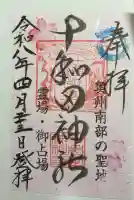 奉拝
奥州南部の聖地
十和田神社
霊場・御占場
令和八年四月二十三日参拝